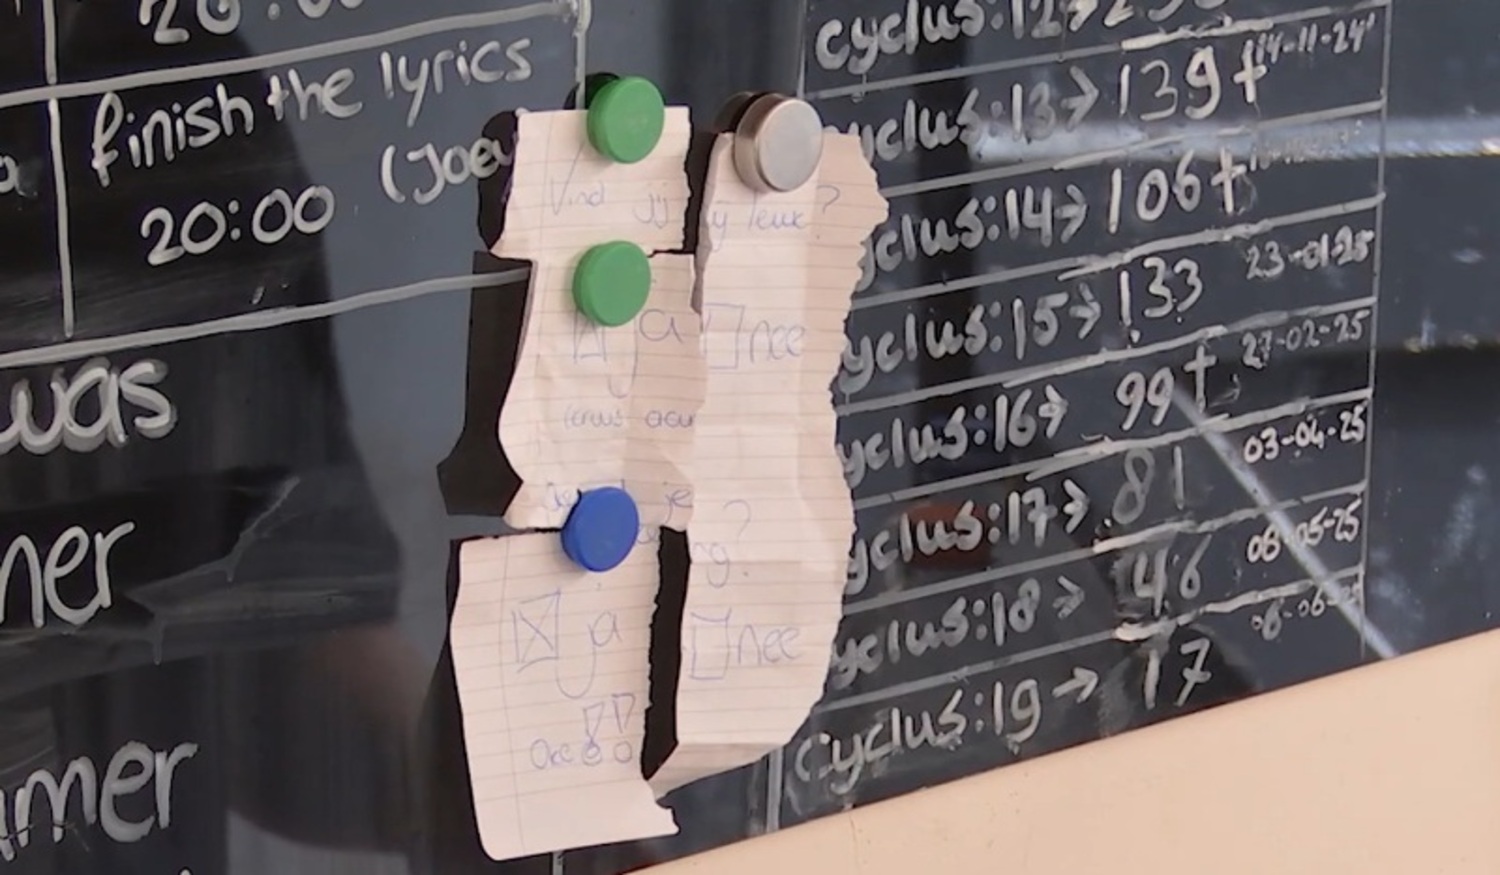 20:00
finish the lyrics
(Joey
20:00
was
ner
mer
Vind jij
ij leuk?
ja nee
je
?
ng?
ja nee
cyclus:12→
cyclus:13→ 139+ 14-11-24
cyclus:14→ 106+
cyclus:15→ 133 23-01-25
cyclus:16→ 99+ 27-02-25
cyclus:17→ 81 03-04-25
cyclus:18→ 46 08-05-25
cyclus:19→ 17 06-06-25